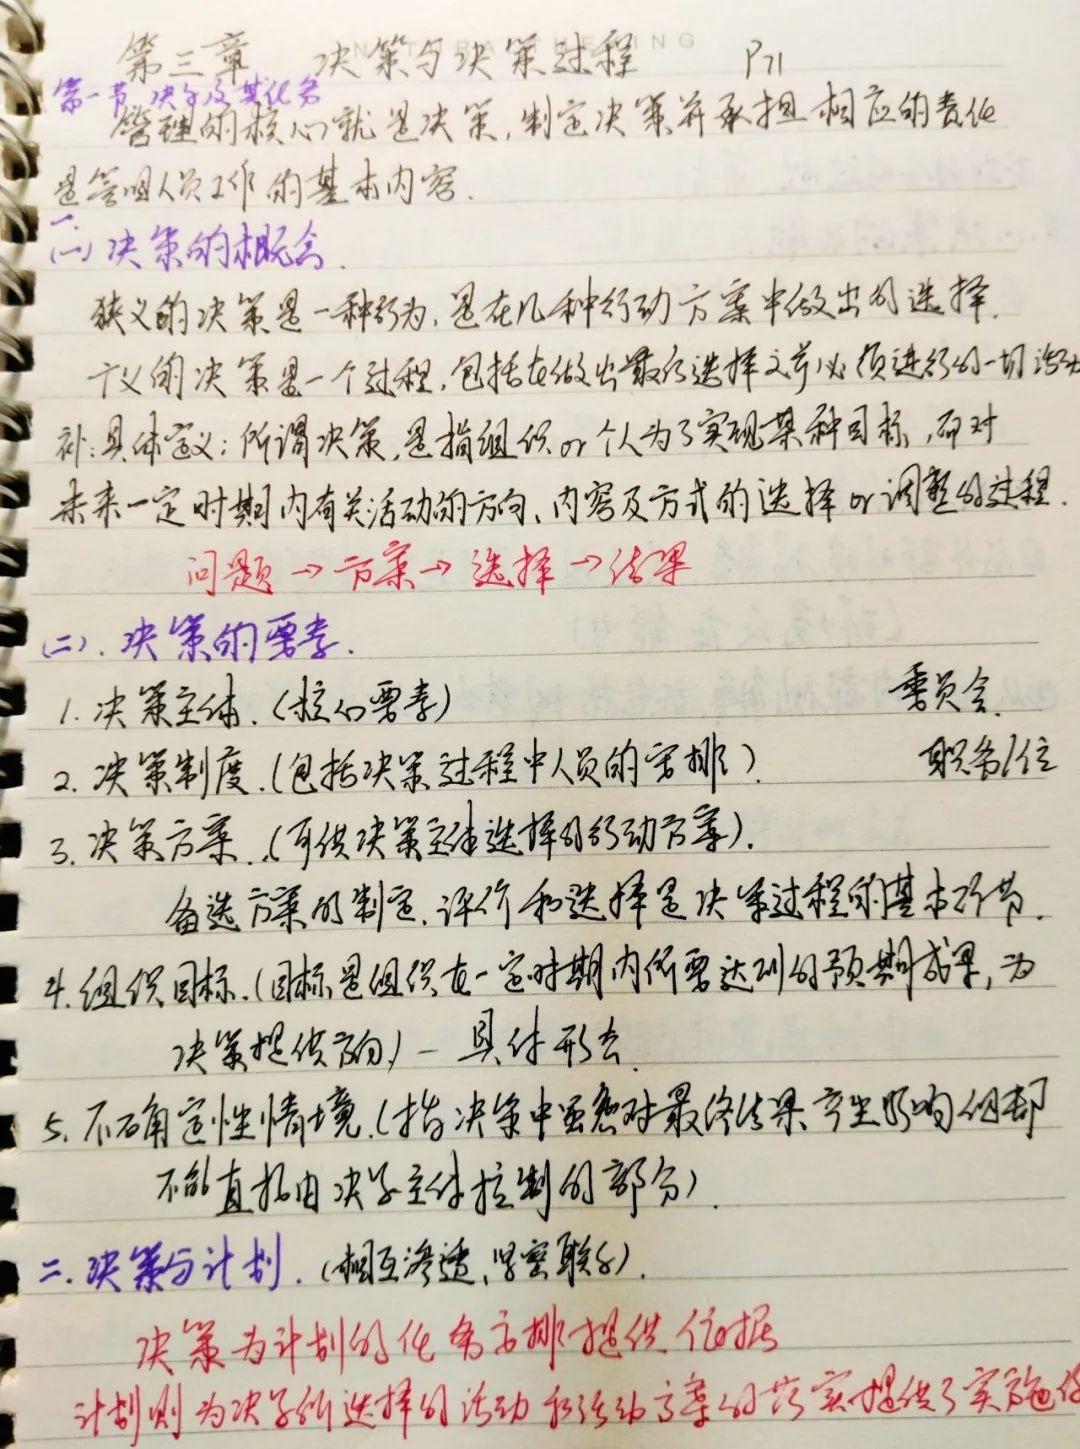 第三章 决策与决策过程 P71
第一节 决策及其任务
管理的核心就是决策,制定决策并承担相应的责任
是管理人员工作的基本内容.
一.
(一)决策的概念.
狭义的决策是一种行为,是在几种行动方案中做出的选择.
广义的决策是一个过程,包括在做出最后选择之前必须进行的一切活动
补:具体定义:所谓决策,是指组织or个人为了实现某种目标,而对
未来一定时期内有关活动的方向、内容及方式的选择or调整的过程.
问题→方案→选择→结果
(二).决策的要素.
1.决策主体.(核心要素) 委员会.
2.决策制度.(包括决策过程中人员的安排). 职务/位
3.决策方案.(可供决策主体选择的行动方案).
备选方案的制定、评价和选择是决策过程的基本环节.
4.组织目标.(目标是组织在一定时期内所要达到的预期成果,为
决策提供方向)—具体形式.
5.不确定性情境.(指决策中虽然对最终结果产生影响但却
不能直接由决策主体控制的部分)
二.决策与计划.(相互渗透,紧密联系).
决策为计划的任务安排提供依据
计划则为决策所选择的活动和活动方案的落实提供了实施保